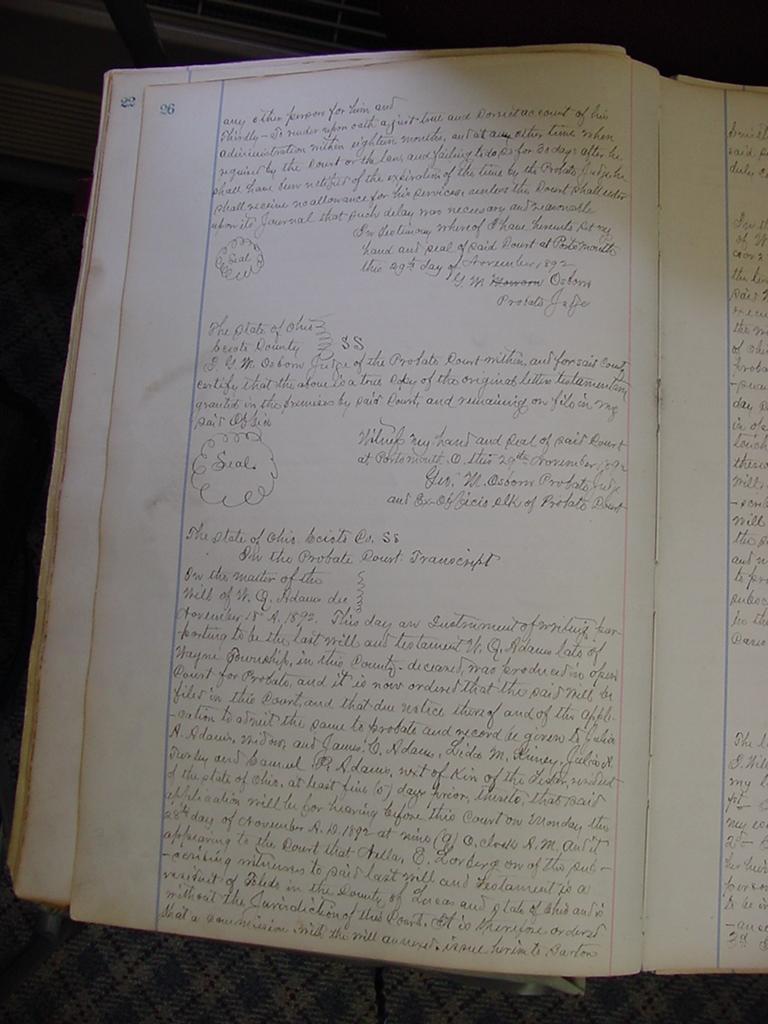 22
26
any other person for him and
Thirdly - To render upon oath a just true and correct account of his
administration within eighteen months, and at any other time when
required by the Court or the law, and failing to do so for 30 days after he
shall have been notified of the expiration of the time by the Probate Judge he
shall receive no allowance for his services, unless the Court shall enter
upon its Journal that such delay was necessary and reasonable
In testimony whereof I have hereunto set my
hand and seal of said Court at Portsmouth
this 29th day of November 1892
Seal
G. M. Osborn
Probate Judge
The State of Ohio
Scioto County SS
I, G. M. Osborn Judge of the Probate Court within, and for said County
certify that the above is a true Copy of the original letters testamentary
granted in the premises by said Court, and remaining on file in my
said Office
Witness my hand and seal of said Court
at Portsmouth O. this 29th November 1892
Seal
Geo. M. Osborn Probate Judge
and Ex-Officio clk of Probate Court
The State of Ohio. Scioto Co. SS
In the Probate Court. Transcript
In the matter of the
Will of W. Q. Adams dec
November 18th A. 1892. This day an Instrument of writing pur-
-porting to be the last will and testament W. Q. Adams late of
Wayne Township, in this County - deceased, was produced in open
Court for Probate, and it is now ordered that the said will be
filed in this Court, and that due notice thereof and of the appli-
-cation to admit the same to probate and record be given to Julia
A. Adams, widow, and James C. Adams, M. Kinney, Julia A.
and Samuel R. Adams, next of Kin of the Testator, resident
of the state of Ohio, at least five (5) days prior, thereto, that said
application will be for hearing before this Court on Monday the
28th day of November A. D. 1892 at nine (9) O. clock A. M. And it
appearing to the Court that E. one of the sub-
-scribing witnesses to said last will and Testament is a
resident of Toledo in the County of Lucas and state of Ohio and is
without the Jurisdiction of this Court. It is therefore ordered
that a commission with the will annexed, issue herein to Barton